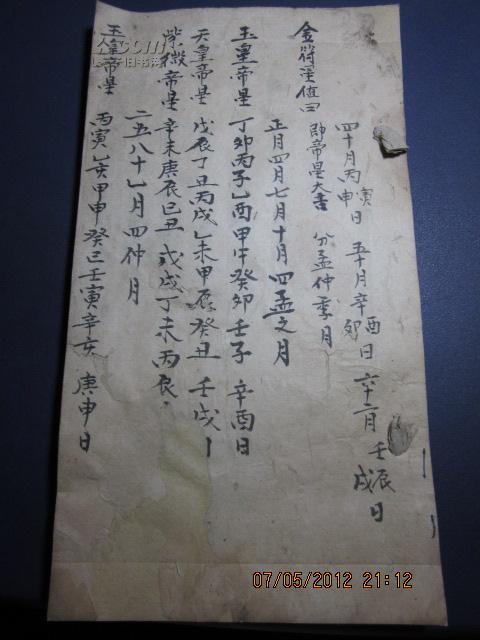 四十月丙寅申日 五十月辛酉卯日 六十二月壬辰戌日
金符星值日 即帝星大吉 分孟仲季月
正月四月七月十月四孟之月
玉皇帝星 丁卯丙子乙酉甲午癸卯壬子 辛酉日
天皇帝星 戊辰丁丑丙戌乙未甲辰癸丑 壬戌
紫微帝星 辛未庚辰己丑 戊戌丁未丙辰
二五八十一月四仲月
玉皇帝星 丙寅乙亥甲申癸巳壬寅辛亥 庚申日
07/05/2012 21:12